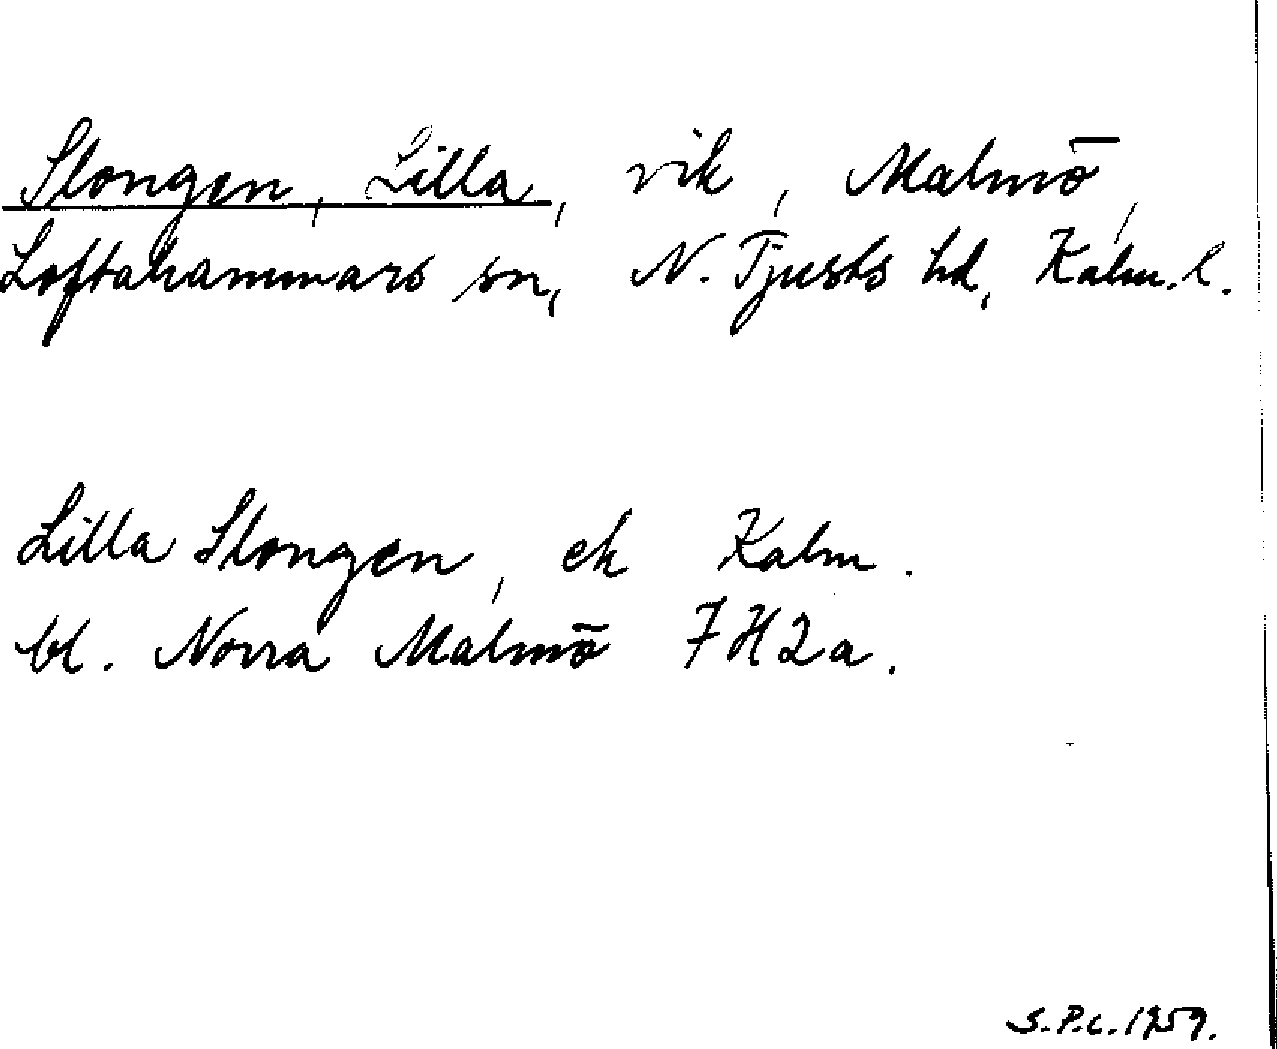 Slongen, Lilla, vik, Malmö,
Loftahammars sn, N. Tjusts hd, Kalm. l.
Lilla Slongen, ek Kalm.
bl. Norra Malmö 7H2a.
S.P.c. 1959.